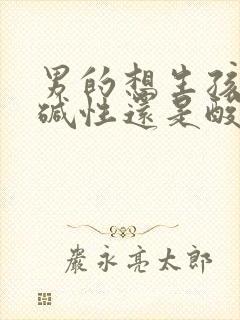 男的想生孩
碱性還是酸
嚴永亮太郎